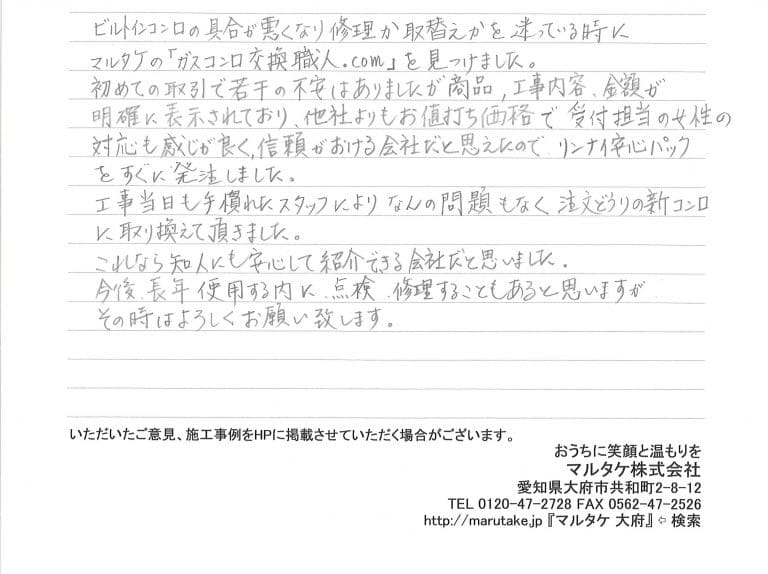 ビルトインコンロの具合が悪くなり修理か取替えかを迷っている時に
マルタケの「ガスコンロ交換職人.com」を見つけました。
初めての取引で若干の不安はありましたが商品,工事内容、金額が
明確に表示されており、他社よりもお値打ち価格で受付担当の女性の
対応も感じが良く,信頼がおける会社だと思えたので リンナイ安心パック
をすぐに発注しました。
工事当日も手慣れたスタッフによりなんの問題もなく注文どうりの新コンロ
に取り換えて頂きました。
これなら知人にも安心して紹介できる会社だと思いました.
今後、長年使用する内に、点検、修理することもあると思いますが
その時はよろしくお願い致します。
いただいたご意見、施工事例をHPに掲載させていただく場合がございます。
おうちに笑顔と温もりを
マルタケ株式会社
愛知県大府市共和町2-8-12
TEL 0120-47-2728 FAX 0562-47-2526
http://marutake.jp『マルタケ 大府』⇦ 検索